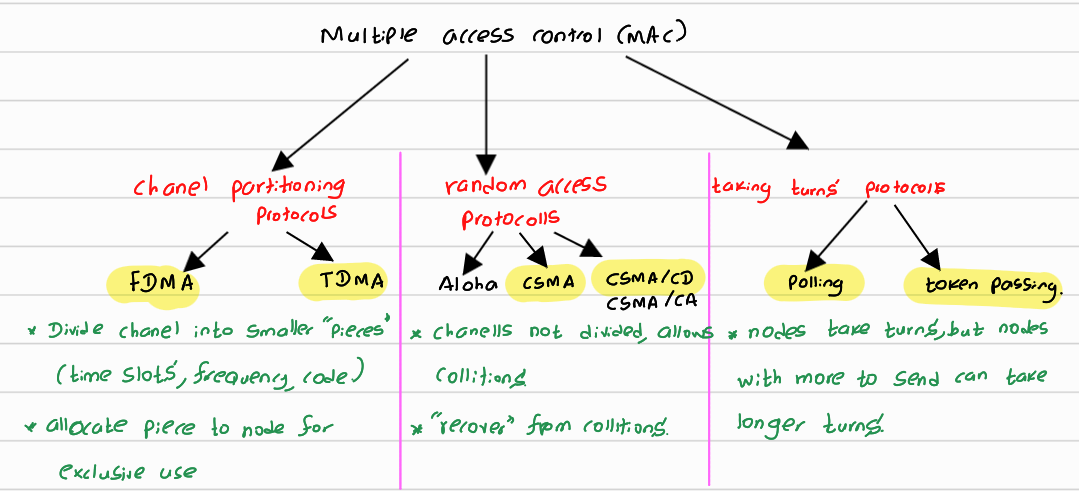 Multiple access control (MAC)
chanel partitioning
protocols
FDMA
TDMA
* Divide chanel into smaller "pieces"
(time slots, frequency, code)
* allocate piece to node for
exclusive use
random access
protocolls
Aloha
CSMA
CSMA/CD
CSMA/CA
* chanells not divided, allows
collitions
* "recover" from collitions.
taking turns protocolls
Polling
token passing.
* nodes take turns, but nodes
with more to send can take
longer turns.